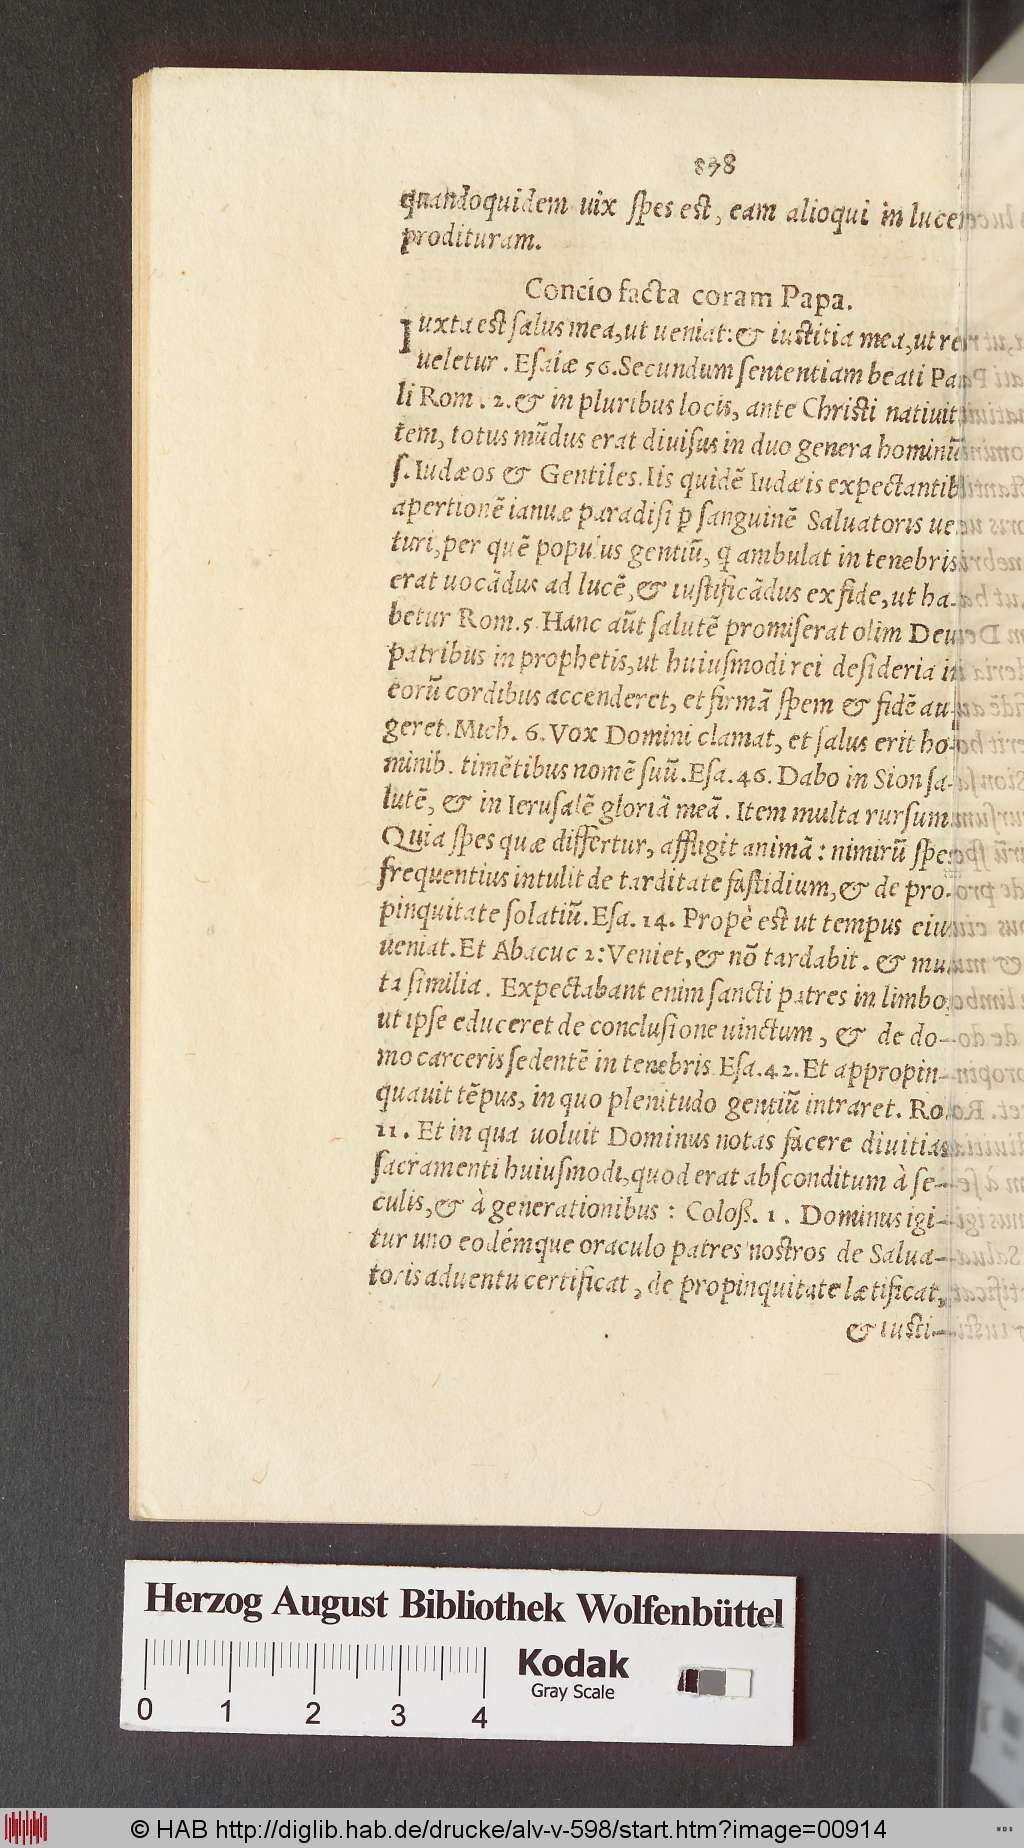 898
quandoquidem uix spes est, eam alioqui in lucem
prodituram.
Concio facta coram Papa.
Iuxta est salus mea, ut ueniat: & iustitia mea, ut re
ueletur. Esaiæ 56. Secundum sententiam beati Pau
li Rom. 2. & in pluribus locis, ante Christi natiuit
tem, totus mũdus erat diuisus in duo genera hominũ
s. Iudæos & Gentiles. Iis quidẽ Iudæis expectantib
apertionẽ ianuæ paradisi ꝑ sanguinẽ Saluatoris uen
turi, per quẽ populus gentiũ, ꝗ ambulat in tenebris
erat uocãdus ad lucẽ, & iustificãdus ex fide, ut ha-
betur Rom. 5. Hanc aũt salutẽ promiserat olim Deus
patribus in prophetis, ut huiusmodi rei desideria in
eorũ cordibus accenderet, et firmã spem & fidẽ au-
geret. Mich. 6. Vox Domini clamat, et salus erit ho-
minib. timẽtibus nomẽ suũ. Esa. 46. Dabo in Sion sa-
lutẽ, & in Ierusalẽ gloriã meã. Item multa rursum
Quia spes quæ differtur, affligit animã: nimirũ spe
frequentius intulit de tarditate fastidium, & de pro-
pinquitate solatiũ. Esa. 14. Propè est ut tempus eius
ueniat. Et Abacuc 2: Veniet, & nõ tardabit. & mul
ta similia. Expectabant enim sancti patres in limbo,
ut ipse educeret de conclusione uinctum, & de do-
mo carceris sedentẽ in tenebris Esa. 42. Et appropin-
quauit tẽpus, in quo plenitudo gentiũ intraret. Ro.
11. Et in qua uoluit Dominus notas facere diuitias
sacramenti huiusmodi, quod erat absconditum à se-
culis, & à generationibus: Coloß. 1. Dominus igi-
tur uno eodémque oraculo patres nostros de Salua-
toris aduentu certificat, de propinquitate lætificat,
& iusti-
Herzog August Bibliothek Wolfenbüttel
0 1 2 3 4
Kodak
Gray Scale
© HAB http://diglib.hab.de/drucke/alv-v-598/start.htm?image=00914